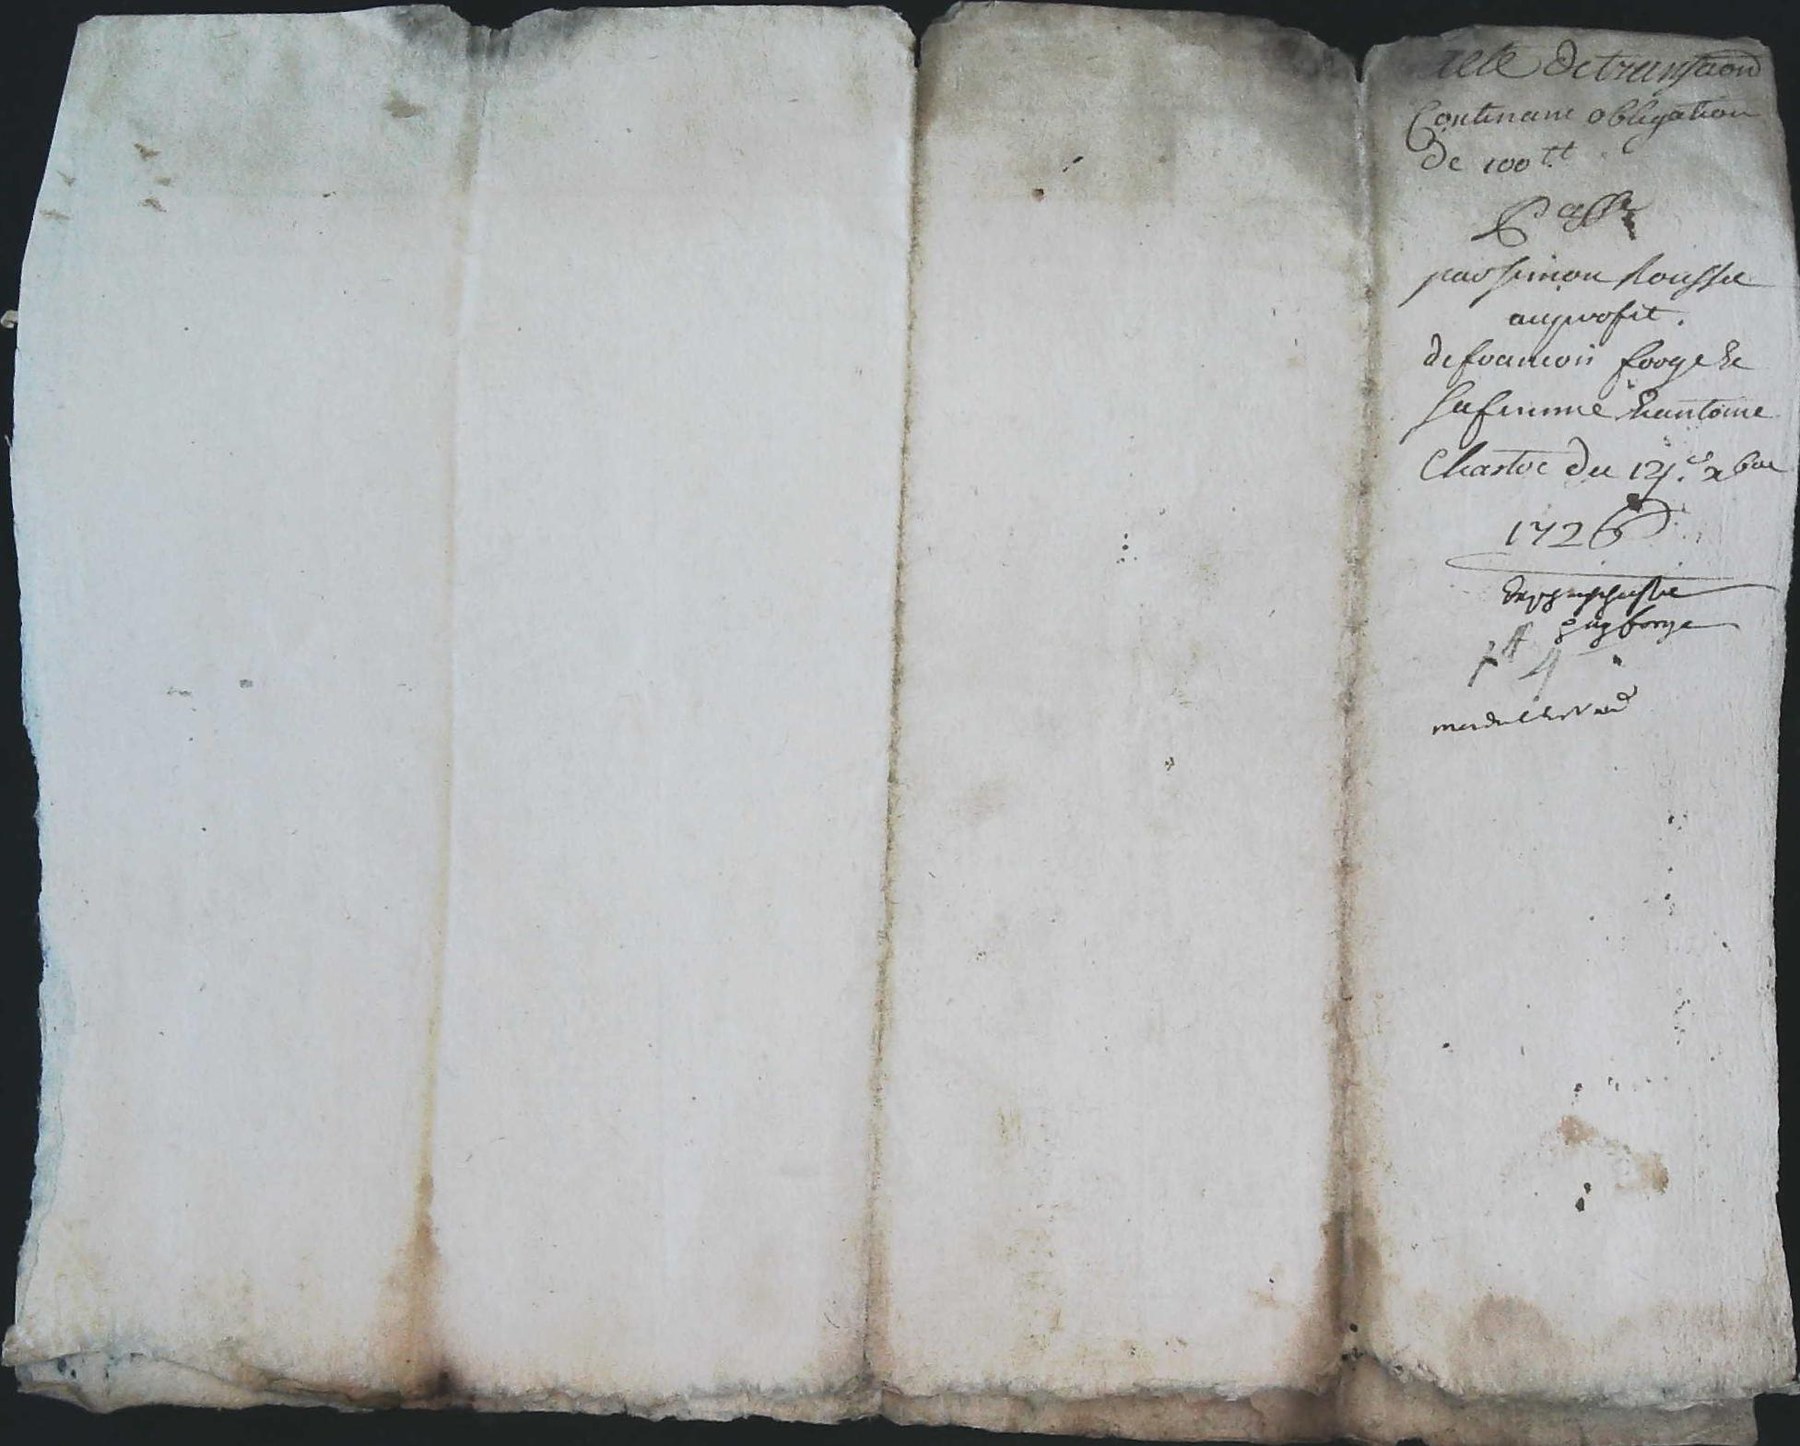 acte de transaction
Contenant obligation
de 100tt
Passé
par simon Rousse
au proffit
de francois forge &
sa femme & antoine
Chastre du 12e xbre
1726
forge